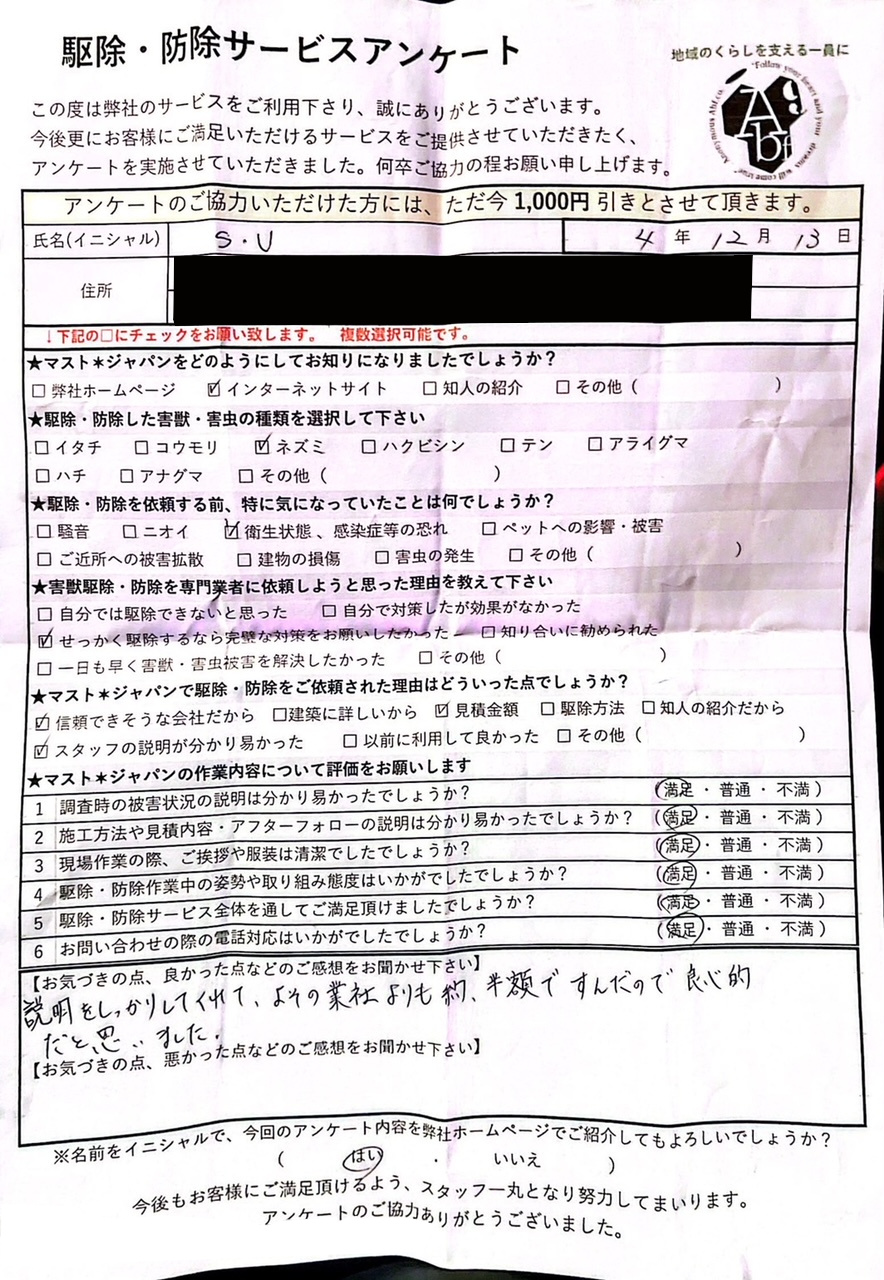 駆除・防除サービスアンケート
地域のくらしを支える一員に
この度は弊社のサービスをご利用下さり、誠にありがとうございます。
今後更にお客様にご満足いただけるサービスをご提供させていただきたく、
アンケートを実施させていただきました。何卒ご協力の程お願い申し上げます。
"Follow your heart and your dreams will come true"
Anonymous Abf.co.
Ag
bf
アンケートのご協力いただけた方には、ただ今 1,000円 引きとさせて頂きます。
氏名(イニシャル) S・U 4 年 12 月 13 日
住所
↓下記の□にチェックをお願い致します。 複数選択可能です。
★マスト＊ジャパンをどのようにしてお知りになりましたでしょうか？
□ 弊社ホームページ ☑ インターネットサイト □ 知人の紹介 □ その他（ ）
★駆除・防除した害獣・害虫の種類を選択して下さい
□ イタチ □ コウモリ ☑ ネズミ □ ハクビシン □ テン □ アライグマ
□ ハチ □ アナグマ □ その他（ ）
★駆除・防除を依頼する前、特に気になっていたことは何でしょうか？
□ 騒音 □ ニオイ ☑ 衛生状態、感染症等の恐れ □ ペットへの影響・被害
□ ご近所への被害拡散 □ 建物の損傷 □ 害虫の発生 □ その他（ ）
★害獣駆除・防除を専門業者に依頼しようと思った理由を教えて下さい
□ 自分では駆除できないと思った □ 自分で対策したが効果がなかった
☑ せっかく駆除するなら完璧な対策をお願いしたかった □ 知り合いに勧められた
□ 一日も早く害獣・害虫被害を解決したかった □ その他（ ）
★マスト＊ジャパンで駆除・防除をご依頼された理由はどういった点でしょうか？
☑ 信頼できそうな会社だから □建築に詳しいから ☑ 見積金額 □ 駆除方法 □ 知人の紹介だから
☑ スタッフの説明が分かり易かった □ 以前に利用して良かった □ その他（ ）
★マスト＊ジャパンの作業内容について評価をお願いします
1 調査時の被害状況の説明は分かり易かったでしょうか？ （満足・普通・不満）
2 施工方法や見積内容・アフターフォローの説明は分かり易かったでしょうか？ （満足・普通・不満）
3 現場作業の際、ご挨拶や服装は清潔でしたでしょうか？ （満足・普通・不満）
4 駆除・防除作業中の姿勢や取り組み態度はいかがでしたでしょうか？ （満足・普通・不満）
5 駆除・防除サービス全体を通してご満足頂けましたでしょうか？ （満足・普通・不満）
6 お問い合わせの際の電話対応はいかがでしたでしょうか？ （満足・普通・不満）
【お気づきの点、良かった点などのご感想をお聞かせ下さい】
説明をしっかりしてくれて、よその業社よりも約、半額ですんだので良心的
だと思いました。
【お気づきの点、悪かった点などのご感想をお聞かせ下さい】
※名前をイニシャルで、今回のアンケート内容を弊社ホームページでご紹介してもよろしいでしょうか？
（ はい ・ いいえ ）
今後もお客様にご満足頂けるよう、スタッフ一丸となり努力してまいります。
アンケートのご協力ありがとうございました。